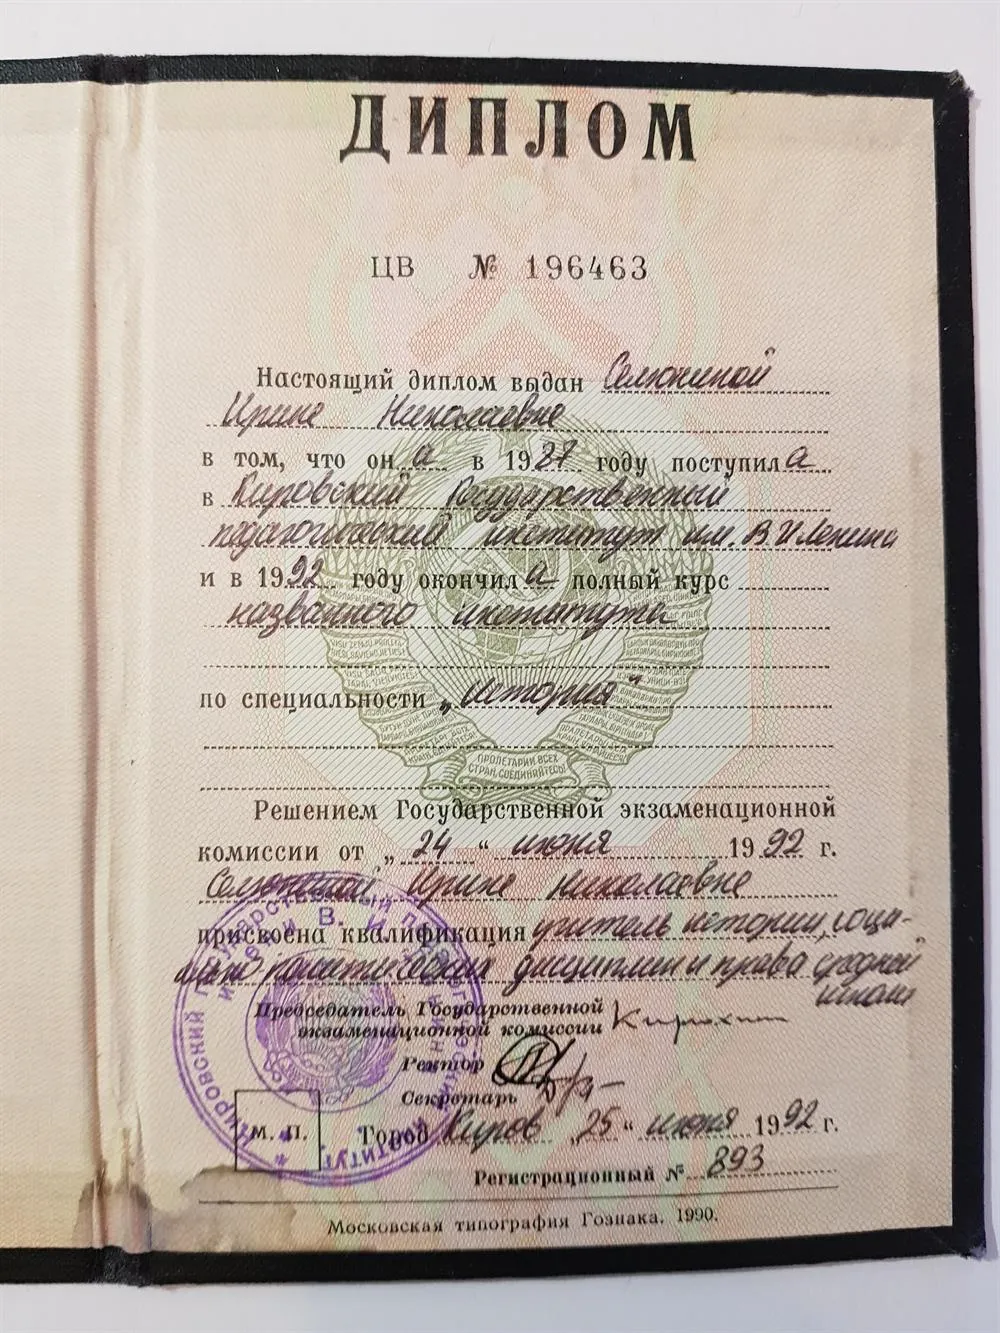 ДИПЛОМ
ЦВ № 196463
Настоящий диплом выдан Селюниной
Ирине Николаевне
в том, что он а в 1987 году поступил а
в Кировский Государственный
педагогический институт им. В.И Ленина
и в 1992 году окончил а полный курс
названного института
по специальности „история"
ПРОЛЕТАРИИ ВСЕХ
СТРАН, СОЕДИНЯЙТЕСЬ!
Решением Государственной экзаменационной
комиссии от „ 24 " июня 1992 г.
Селюниной Ирине Николаевне
присвоена квалификация учитель истории, соци-
ально-политических дисциплин и права средней
школы
Председатель Государственной
экзаменационной комиссии
Ректор
Секретарь
М. П. Город Киров „ 25 " июня 1992 г.
Регистрационный № 893
Московская типография Гознака. 1990.